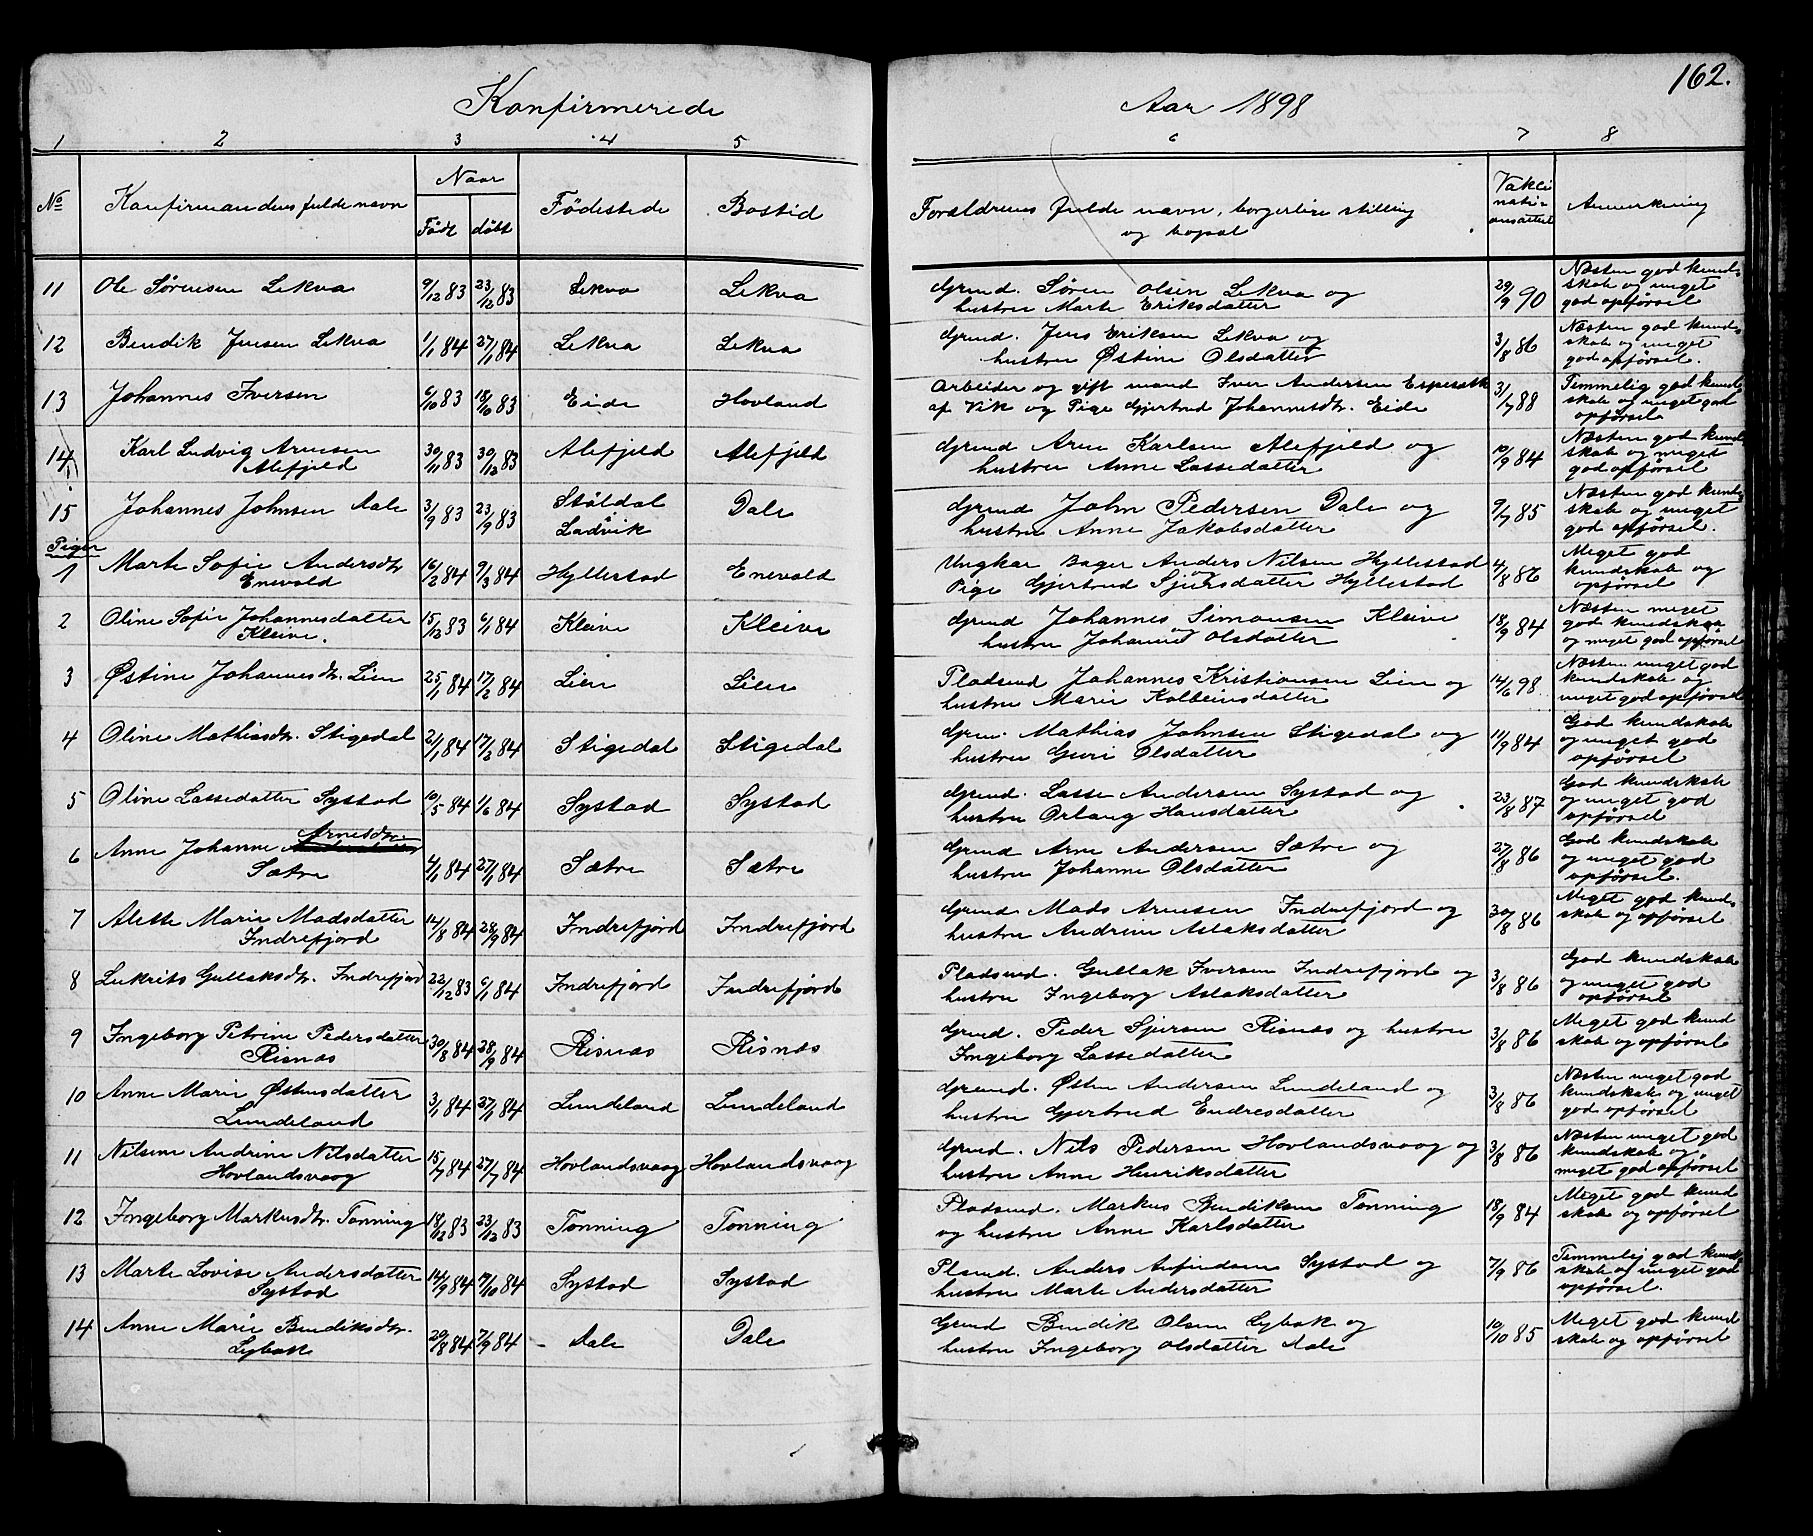 Konfirmerede Aar 1898 162.
1 2 3 4 5 6 7 8
No Konfirmandens fulde navn Naar Født døbt Fødestede Bostid Forældrenes fulde navn, borgerlige stilling og bopæl Vakcinationsattest Anmerkning
11 Ole Sørensen Lekva 9/12 83 23/12 83 Lekva Lekva Grund. Søren Olsen Lekva og
hustru Marte Eriksdatter 29/9 90 Næsten god kundskab og meget god opførsel
12 Bendik Jensen Lekva 1/1 84 27/1 84 Lekva Lekva Grund. Jens Eriksen Lekva og
hustru Østine Olsdatter 3/8 86 Næsten god kundskab og meget god opførsel.
13 Johannes Iversen 6/10 83 18/10 83 Eide Hovland Arbeider og gift mand Iver Andersen
af Vik og Pige Gjertrud Johannesdtr. Eide 31/7 88 Temmelig god kundskab og meget god opførsel
14 Karl Ludvig Arnesen
Alefjeld 30/11 83 30/12 83 Alefjeld Alefjeld Grund Arne Karlsen Alefjeld og
hustru Anne Lassedatter 10/9 84 Næsten god kundskab og meget god opførsel
15 Johannes Johnsen Dale 3/9 83 23/9 83 Støldal
Ladvik Dale Grund John Pedersen Dale og
hustru Anne Jakobsdatter 9/7 85 Næsten god kundskab og meget god opførsel.
Piger
1 Marte Sofie Andersdtr
Enevold 16/2 84 9/3 84 Hyllestad Enevold Ungkar Bager Anders Nilsen Hyllestad
Pige Gjertrud Sjursdatter Hyllestad 4/8 86 Meget god kundskab og opførsel
2 Oline Sofie Johannesdatter
Kleive. 15/12 83 6/1 84 Kleive Kleive Grund Johannes Simonsen Kleive
hustru Johanne Olsdatter 18/9 84 Næsten meget god kundskab og meget god opførsel
3 Østine Johannesdtr. Lien 25/1 84 17/2 84 Lien Lien Pladsmd Johannes Kristiansen Lien og
hustru Marie Kolbeinsdatter 14/6 98 Næsten meget god kundskab og meget god opførsel
4 Oline Mathiasdtr. Stigedal 21/1 84 17/2 84 Stigedal Stigedal Grun. Mathias Johnsen Stigedal og
hustru Guri Olsdatter 11/9 84 God kundskab og meget god opførsel
5 Oline Lassedatter Systad 10/5 84 1/6 84 Systad Systad Grund. Lasse Andersen Systad og
hustru Orlaug Hansdatter 23/8 87 God kundskab og meget god opførsel
6 Anne Johanne Arnesdtr.
Sætre 4/1 84 27/1 84 Sætre Sætre Grund Arne Andersen Sætre og
hustru Johanne Olsdatter 27/8 86 God kundskab og meget god opførsel.
7 Alette Marie Madsdatter
Indrefjord 14/8 84 28/9 84 Indrefjord Indrefjord Grund Mads Arnesen Indrefjord og
hustru Andrine Aslaksdatter 30/8 86 Meget god kundskab og opførsel
8 Lukrits Gullaksdtr. Indrefjord 22/12 83 6/1 84 Indrefjord Indrefjord Pladsmd. Gullak Iversen Indrefjord og
hustru Ingeborg Aslaksdatter 3/8 86 God kundskab og meget god opførsel
9 Ingeborg Petrine Pedersdatter
Risnæs 30/8 84 28/9 84 Risnæs Risnæs Grund. Peder Sjursen Risnæs og hustru
Ingeborg Lassedatter 3/8 86 Meget god kundskab og opførsel
10 Anne Marie Østensdatter
Lundeland 3/1 84 27/1 84 Lundeland Lundeland Grund. Østen Andersen Lundeland og
hustru Gjertrud Endresdatter 3/8 86 Næsten meget god kundskab og meget god opførsel
11 Nilsine Andrine Nilsdatter
Hovlandsvaag 15/7 84 27/7 84 Hovlandsvaag Hovlandsvaag Grund. Nils Pedersen Hovlandsvaag og
hustru Anne Henriksdatter 3/8 86 Næsten meget god kundskab og meget god opførsel
12 Ingeborg Markusdtr. Tønning 18/12 83 23/12 83 Tønning Tønning Pladsmd. Markus Bendiksen Tønning
og hustru Anne Karlsdatter 18/9 84 Meget god kundskab og opførsel
13 Marte Lovise Andersdatter
Systad 14/9 84 7/10 84 Systad Systad Plsmd. Anders Anfindsen Systad og
hustru Marte Andersdatter 7/9 86 Temmelig god kundskab og meget god opførsel.
14 Anne Marie Bendiksdtr.
Lybæk 20/8 84 7/9 84 Dale Dale Grund Bendik Olsen Lybæk og
hustru Ingeborg Olsdatter Dale 10/10 85 Meget god kundskab og opførsel